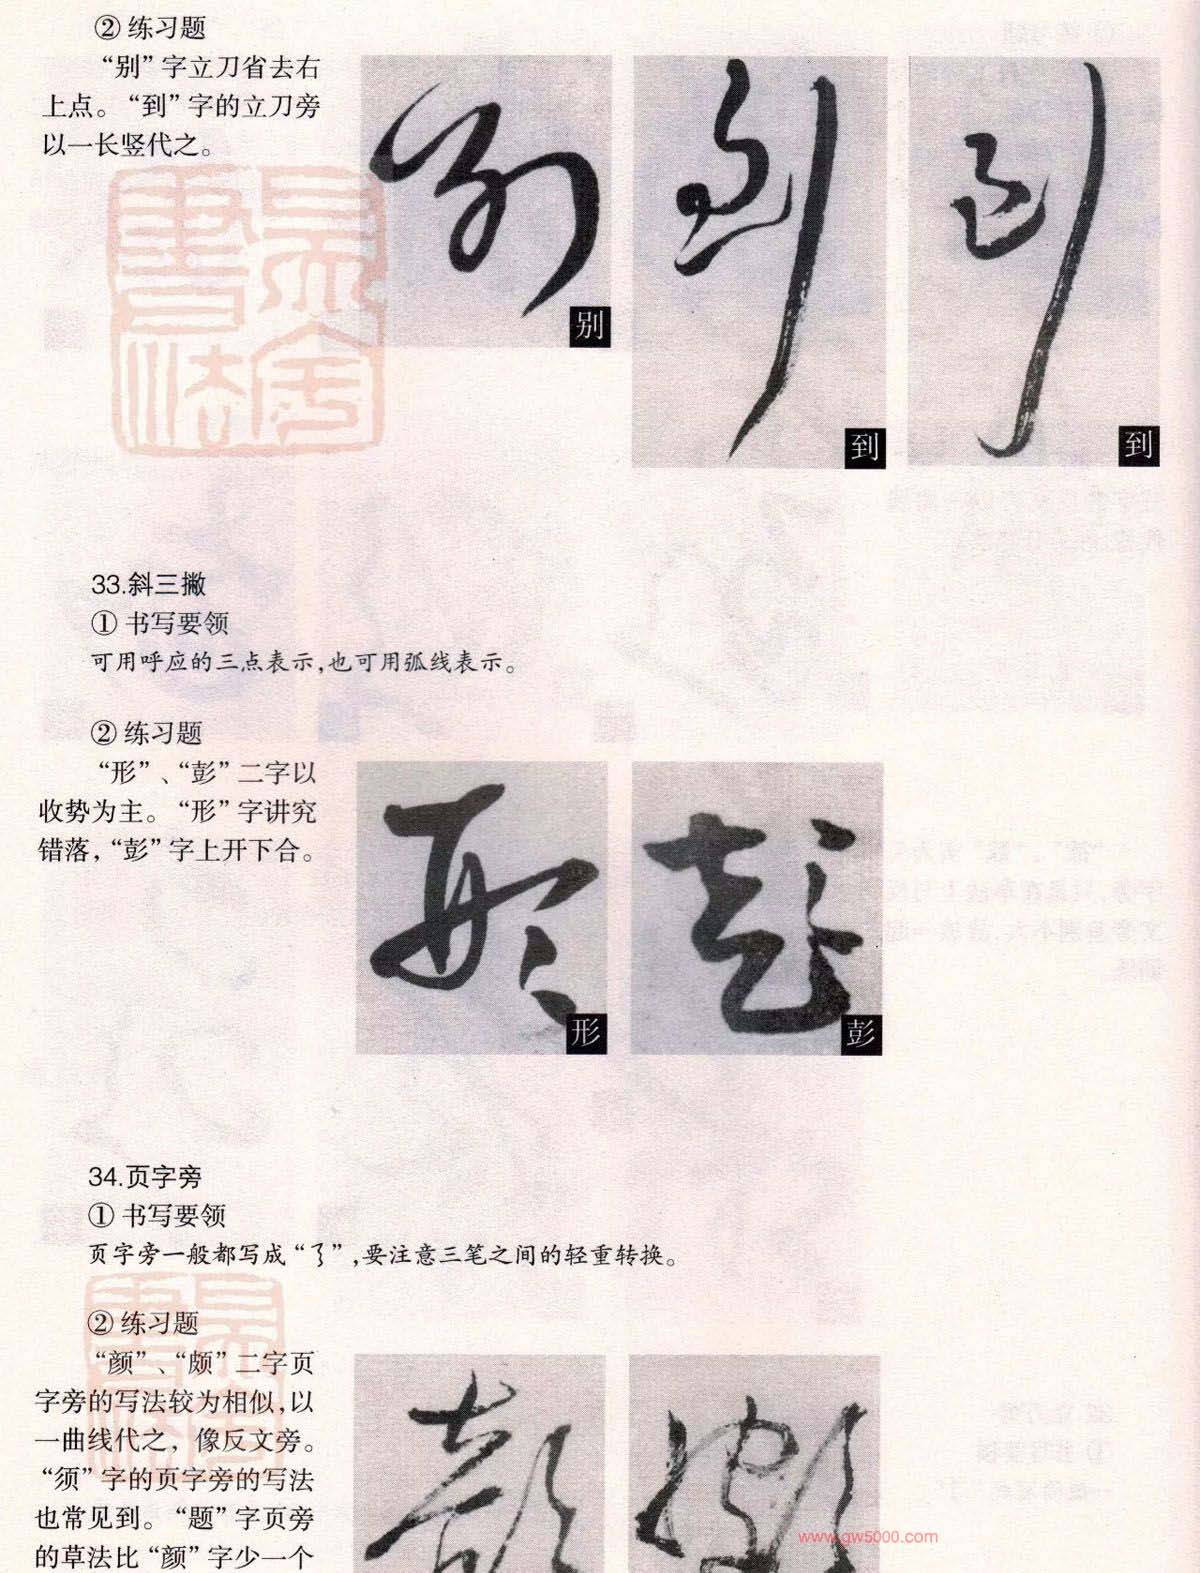 ② 练习题
“别”字立刀省去右
上点。“到”字的立刀旁
以一长竖代之。
别
到
到
33.斜三撇
① 书写要领
可用呼应的三点表示,也可用弧线表示。
② 练习题
“形”、“彭”二字以
收势为主。“形”字讲究
错落,“彭”字上开下合。
形
彭
34.页字旁
① 书写要领
页字旁一般都写成“”,要注意三笔之间的轻重转换。
② 练习题
“颜”、“颇”二字页
字旁的写法较为相似,以
一曲线代之,像反文旁。
“须”字的页字旁的写法
也常见到。“题”字页旁
的草法比“颜”字少一个
www.gw5000.com